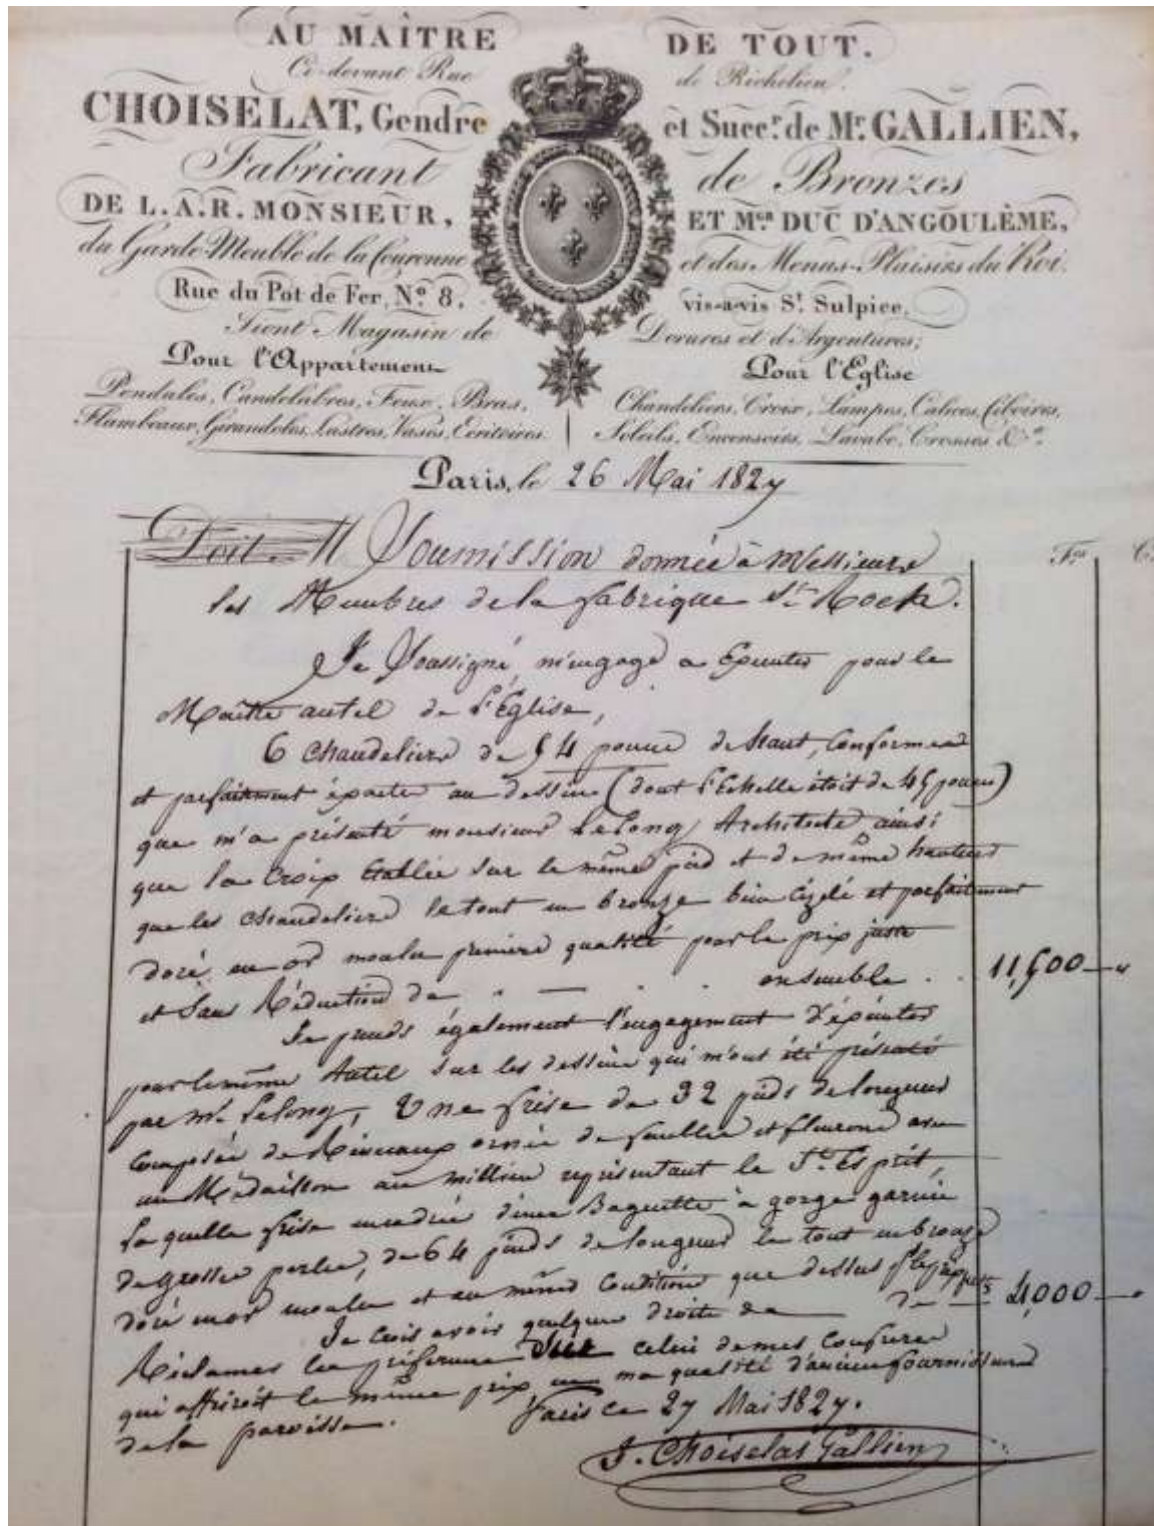 AU MAÎTRE DE TOUT.
Ci-devant Rue de Richelieu.
CHOISELAT, Gendre et Succr. de Mr. GALLIEN,
Fabricant de Bronzes
DE L.A.R. MONSIEUR, ET Mgr. DUC D'ANGOULÊME,
du Garde-Meuble de la Couronne et des Menus-Plaisirs du Roi.
Rue du Pot de Fer, No. 8. vis-a-vis St. Sulpice,
Tient Magasin de Dorures et d'Argentures;
Pour l'Appartement
Pendules, Candelabres, Feux, Bras,
Flambeaux, Girandoles, Lustres, Vases, Ecritoires.
Pour l'Eglise
Chandeliers, Croix, Lampes, Calices, Ciboires,
Soleils, Encensoirs, Lavabo, Crosses &a.
Paris, le 26 Mai 1827
Doit M Soumission donnée à Messieurs
les Membres de la fabrique St. Roch.
Frs. C.
Je Soussigné, m'engage a Executer pour le
Maitre autel de l'Eglise,
6 Chandeliers de 54 pouces de haut, conformes
et parfaitement éxacter au dessin (dont l'Echelle étoit de 45 pouces)
que m'a présenté monsieur Lelong Architecte ainsi
que la Croix Etablie sur le même pied et de même hauteur
que les chandeliers le tout en bronze bien cizelé et parfaitement
doré en or moulu premiere qualité pour le prix juste
et sans Réduction de ensemble . . 11,500 — "
Je prends également l'engagement d'éxécuter
pour le même Autel sur les dessins qui m'ont été présenté
par Mr. Lelong, Une frise de 32 pieds de longueur
Composée de Rinceaux ornée de feuilles et fleurons avec
un Médaillon au millieu représentant le St. Esprit,
laquelle frise encadrée d'une Baguette à gorge garnie
de grosses perles, de 64 pieds de longueur le tout en bronze
doré en or moulu et aux mêmes Conditions que dessus
de 4,000 — "
Je crois avoir quelque droits de
Réclamer la préférence sur celui de mes confreres
qui offriroit le même prix, en ma qualité d'ancien fournisseur
de la paroisse. Paris ce 27 Mai 1827.
J. Choiselat Gallien